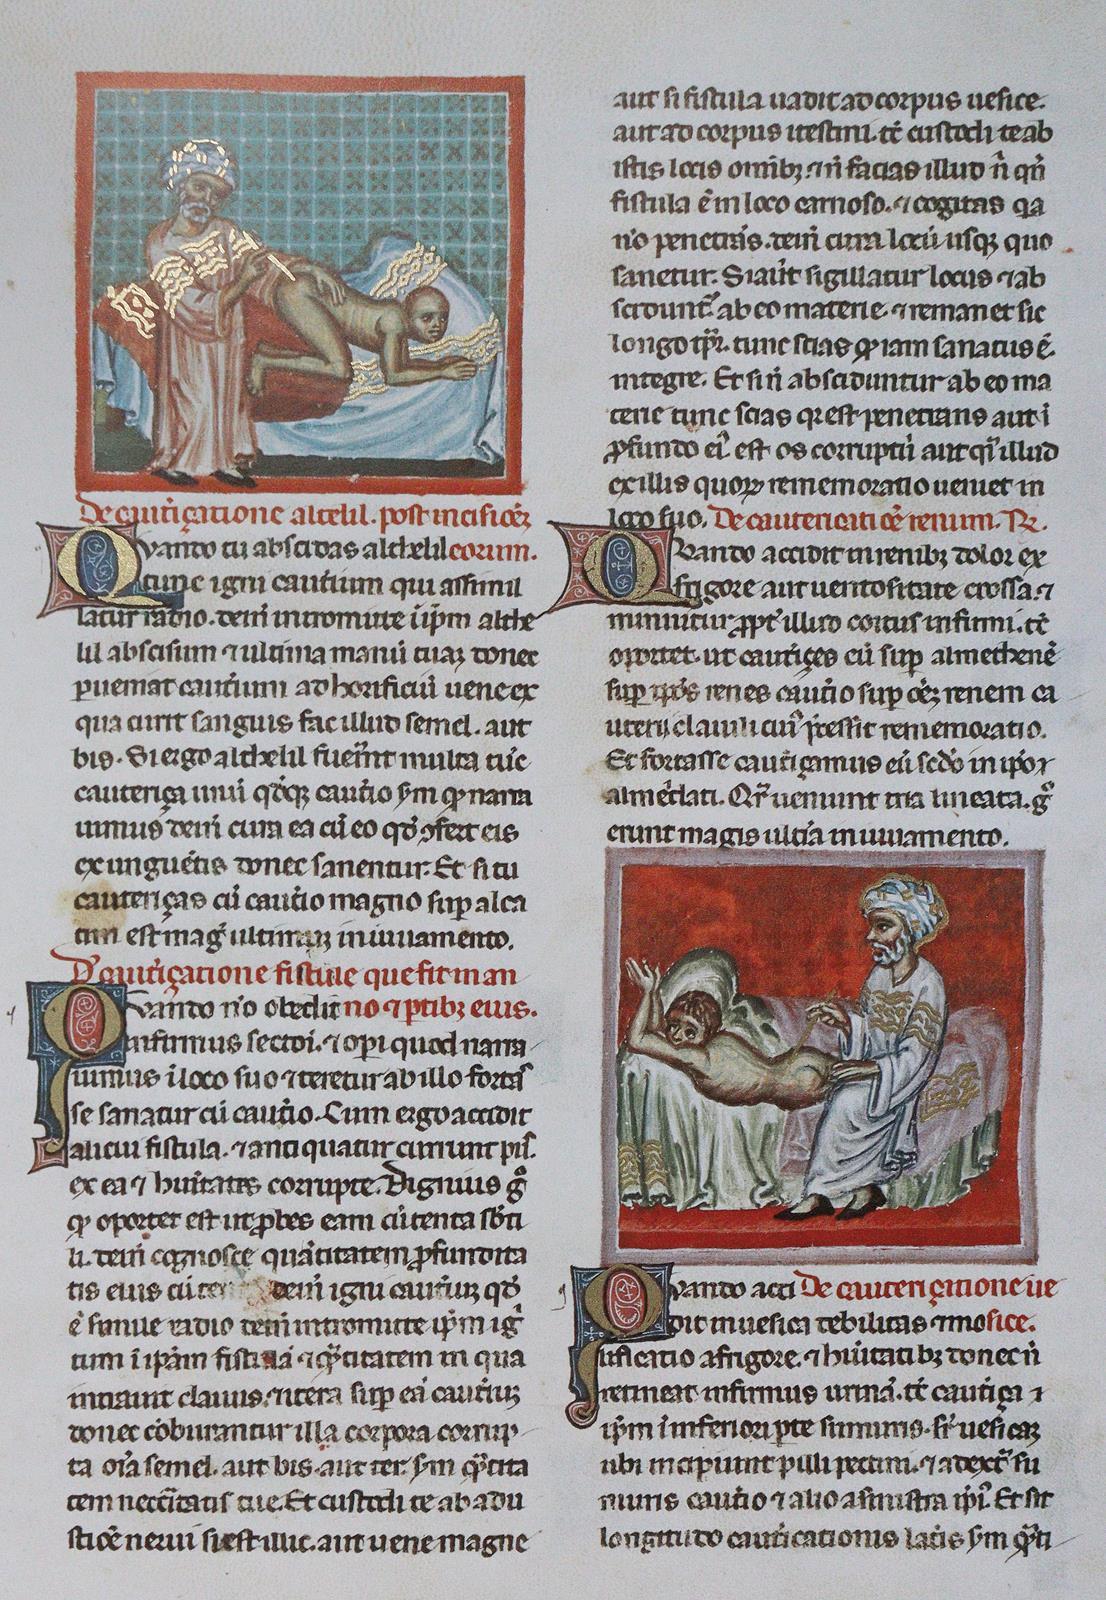 De cauterizatione altelil. post incisiõez
Quando tu abscidas althelil eorum.
tunc igni cauterium qui assimil
latur radio. dein intromitte ipm althe
lil abscisum ⁊ ultima manũ tuaz donec
puemat cauterium ad horificiũ uene ex
qua currit sanguis fac illud semel. aut
bis. Si ergo althelil fuerint multa tũc
cauteriça unũ qdqz cautio sm qp narra
uimus dein cura ea cũ eo qd 9fert eis
ex unguẽtis donec sanentur. Et si tu
cauteriças cũ cautio magno sup alca
tim est mag ultimuz iuuamento.
De cautiçatione fistule que fit in an
Quando nõ obedit no ⁊ ptibz eius.
infirmus sectõi. ⁊ opi quod narra
uimus i loco suo ⁊ teretur ab illo fortas
se sanatur cũ cautio. Cum ergo accidit
alicui fistula. ⁊ antiquatur currunt pus
ex ea ⁊ huiditates corrupte. Dignius g
qp oportet est ut pbes eam cũ tenta sbti
li. dein cognosce quãtitatem pfundita
tis eius cũ dein igni cautiuz qd
ẽ simile radio dein intromitte ipm ig
tum i ipam fistulã ⁊ qtitatem in qua
intrauit clauus. ⁊ itera sup eã cautiuz
donec cõburantur illa corpora corrup
ta oia semel. aut bis. aut ter. sm qtita
tem necessitatis tue. Et custodi te ab adu
stiõe nerui si est illic. aut uene magne
aut si fistula uadit ad corpus uesice.
aut ad corpus itestini. tẽ custodi te ab
istis locis omibz. ⁊ nõ facias illud ñ qñ
fistula ẽ in loco carnoso. ⁊ cogitas qa
nõ penetrãs. dein cura locũ usqz quo
sanetur. Si aut sigillatur locus ⁊ ab
sciduntur ab eo materie. ⁊ remanet sic
longo tpr. tunc scias qp iam sanatus ẽ
integre. Et si ñ absciduntur ab eo ma
terie tunc scias qp est penetrans aut i
pfundo ei est os corruptũ aut qi illud
ex illis quorum rememoratio ueniet in
loco suo. De cautericatiõe renum. R.
Quando accidit in renibz dolor ex
frigore aut uentositate grossa. ⁊
minuitur ppt illud coitus infirmi. tẽ
oportet. ut cautiçes eũ sup almethenẽ
sup ipõs renes cautio sup oẽz renem ca
uterii clauili cui pcessit rememoratio.
Et fortasse cautiçamus eũ sedo in ipor
almedati. Qr ueniunt tria lineata. g
erunt magis ultia in iuuamento.
Quando acci De cautericatione ue
dit in uesica debilitas ⁊ mo sice.
lificatio a frigore. ⁊ huiditatibz donec ñ
retineat infirmus urinã. tẽ cautiça
ipm i inferiori pte sumuris. sr uesicaz
ubi incipiunt pilli pectini. ⁊ a dextr su
muris cautio ⁊ alio a sinistra ipi. Et sit
longitudo cauticationis latis sm qti